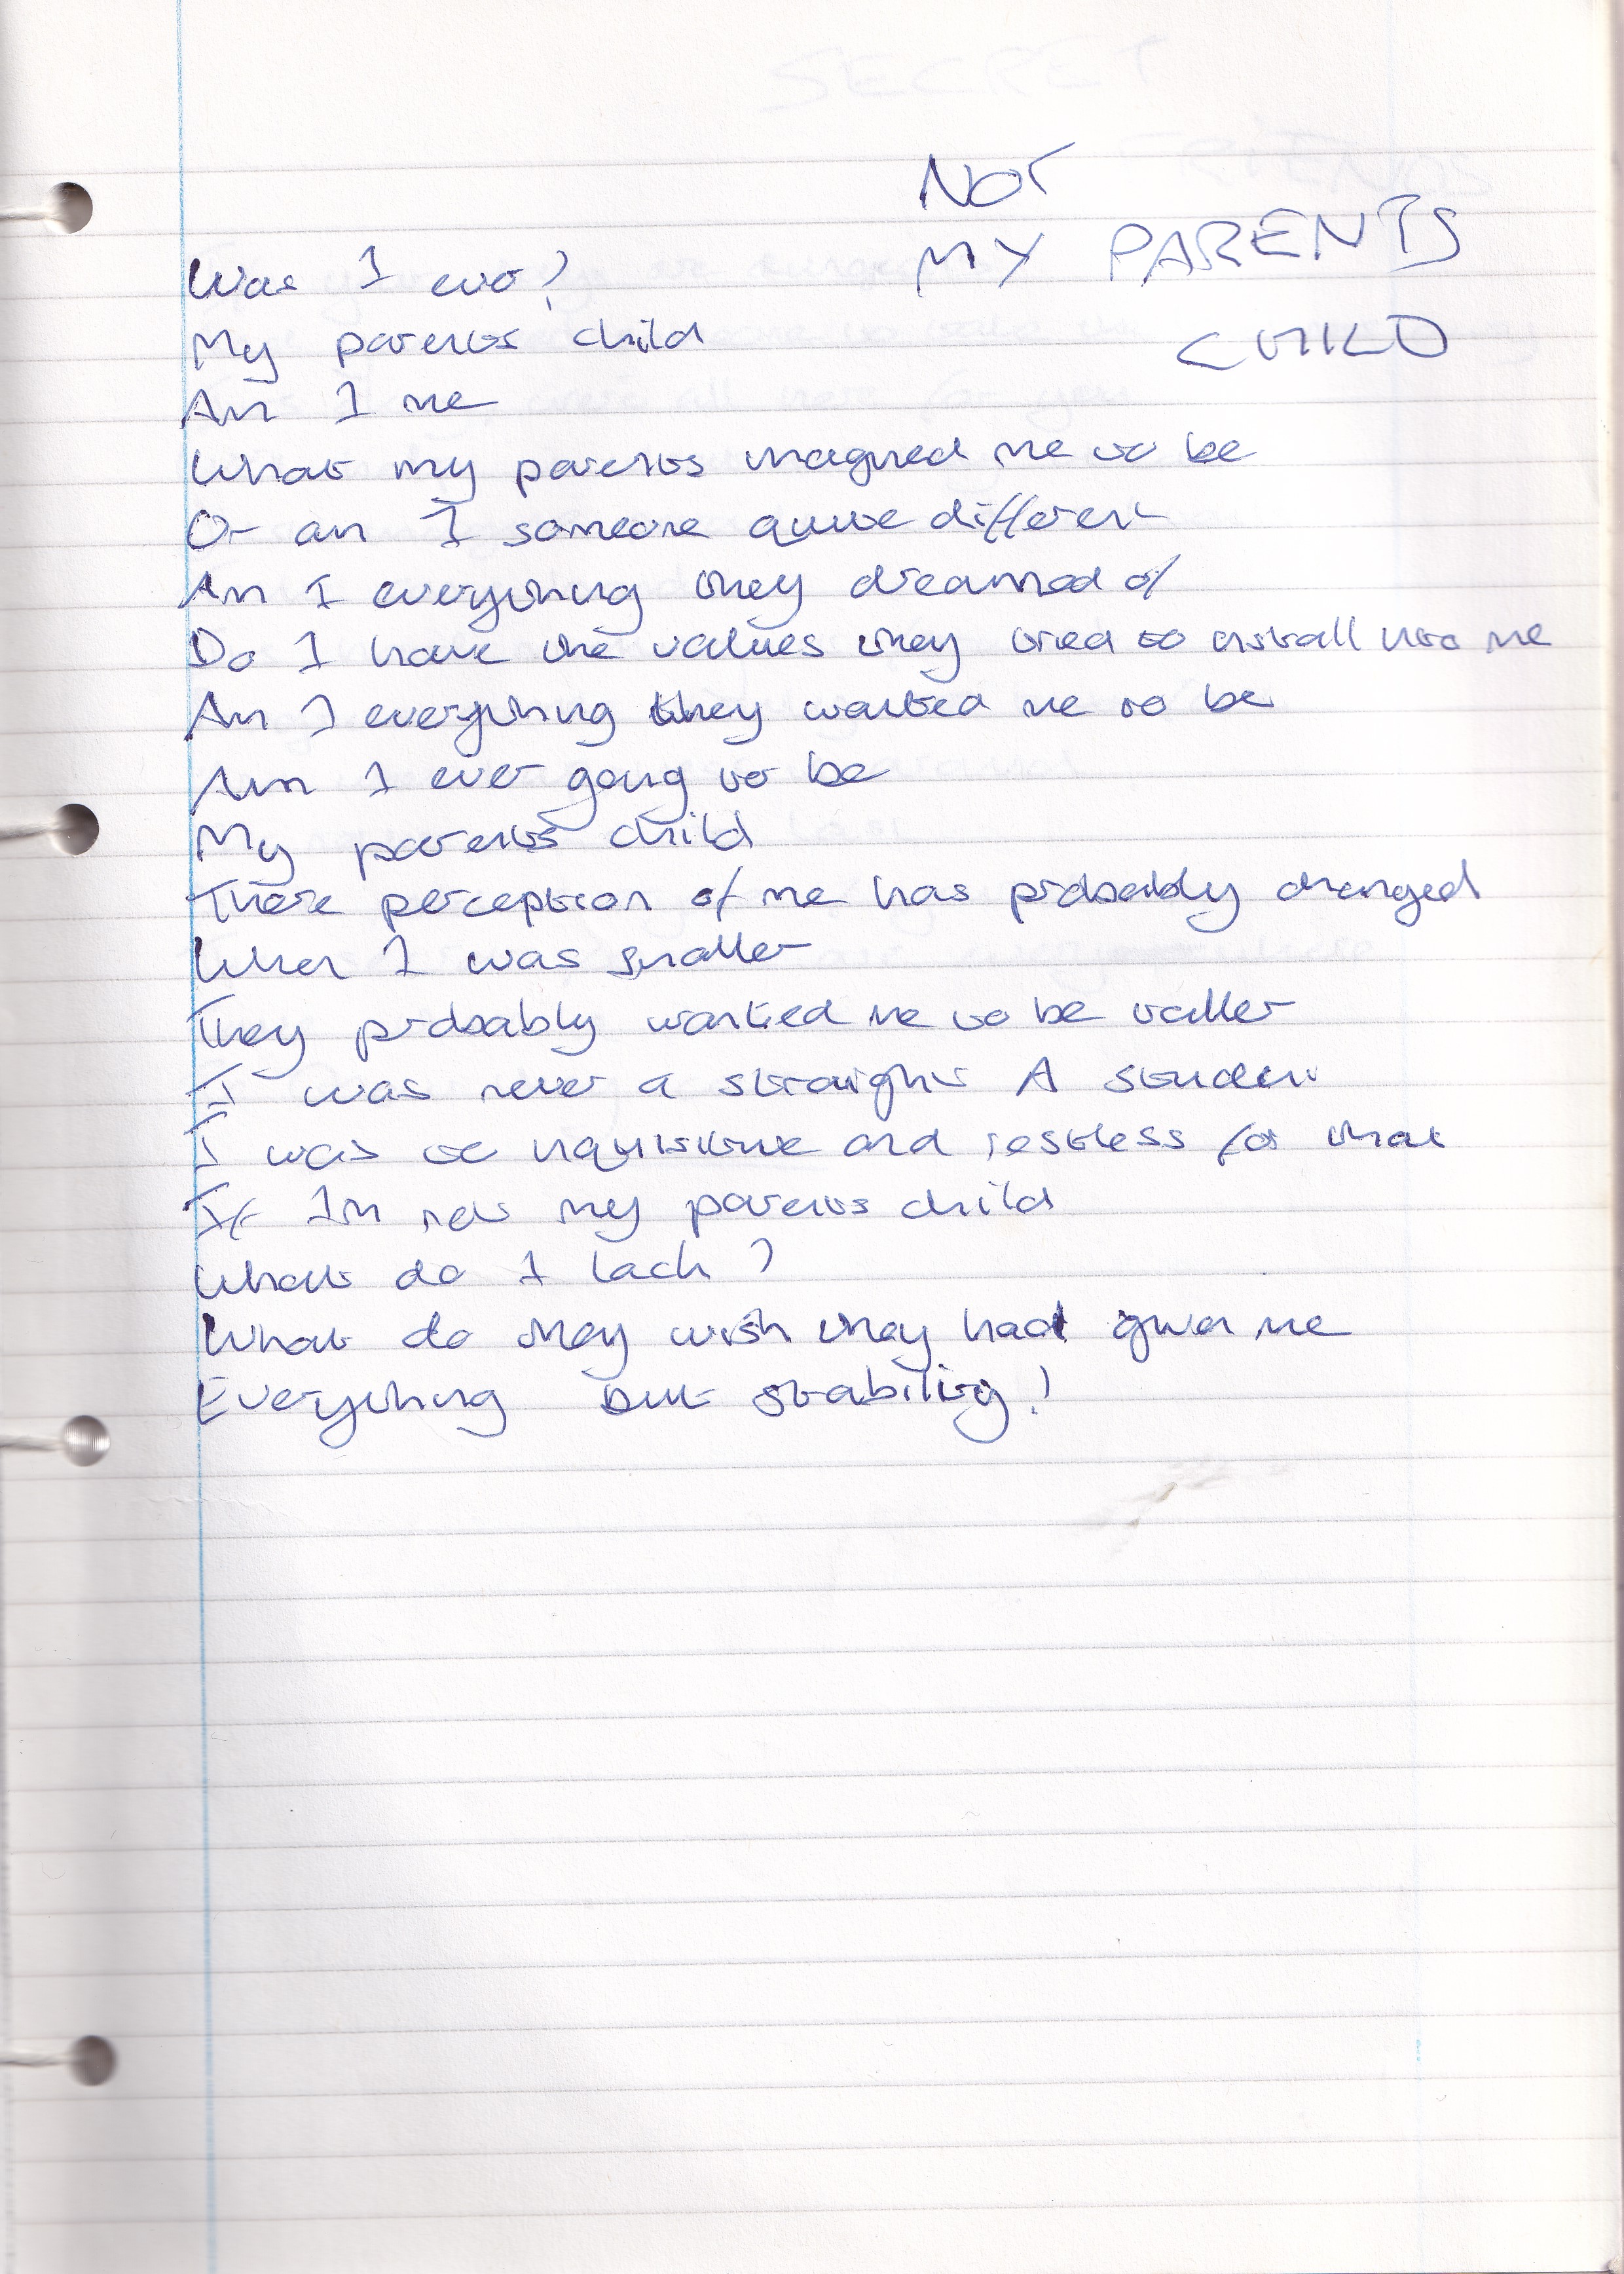 NOT
MY PARENTS
CHILD
Was I ever?
My parents child
Am I me
What my parents imagined me to be
Or am I someone quite different
Am I everything they dreamed of
Do I have the values they tried to install into me
Am I everything they wanted me to be
Am I ever going to be
My parents child
There perception of me has probably changed
When I was smaller
They probably wanted me to be taller
I was never a straight A student
I was to inquisitive and restless for that
If Im not my parents child
What do I lack?
What do they wish they had given me
Everything but stability!